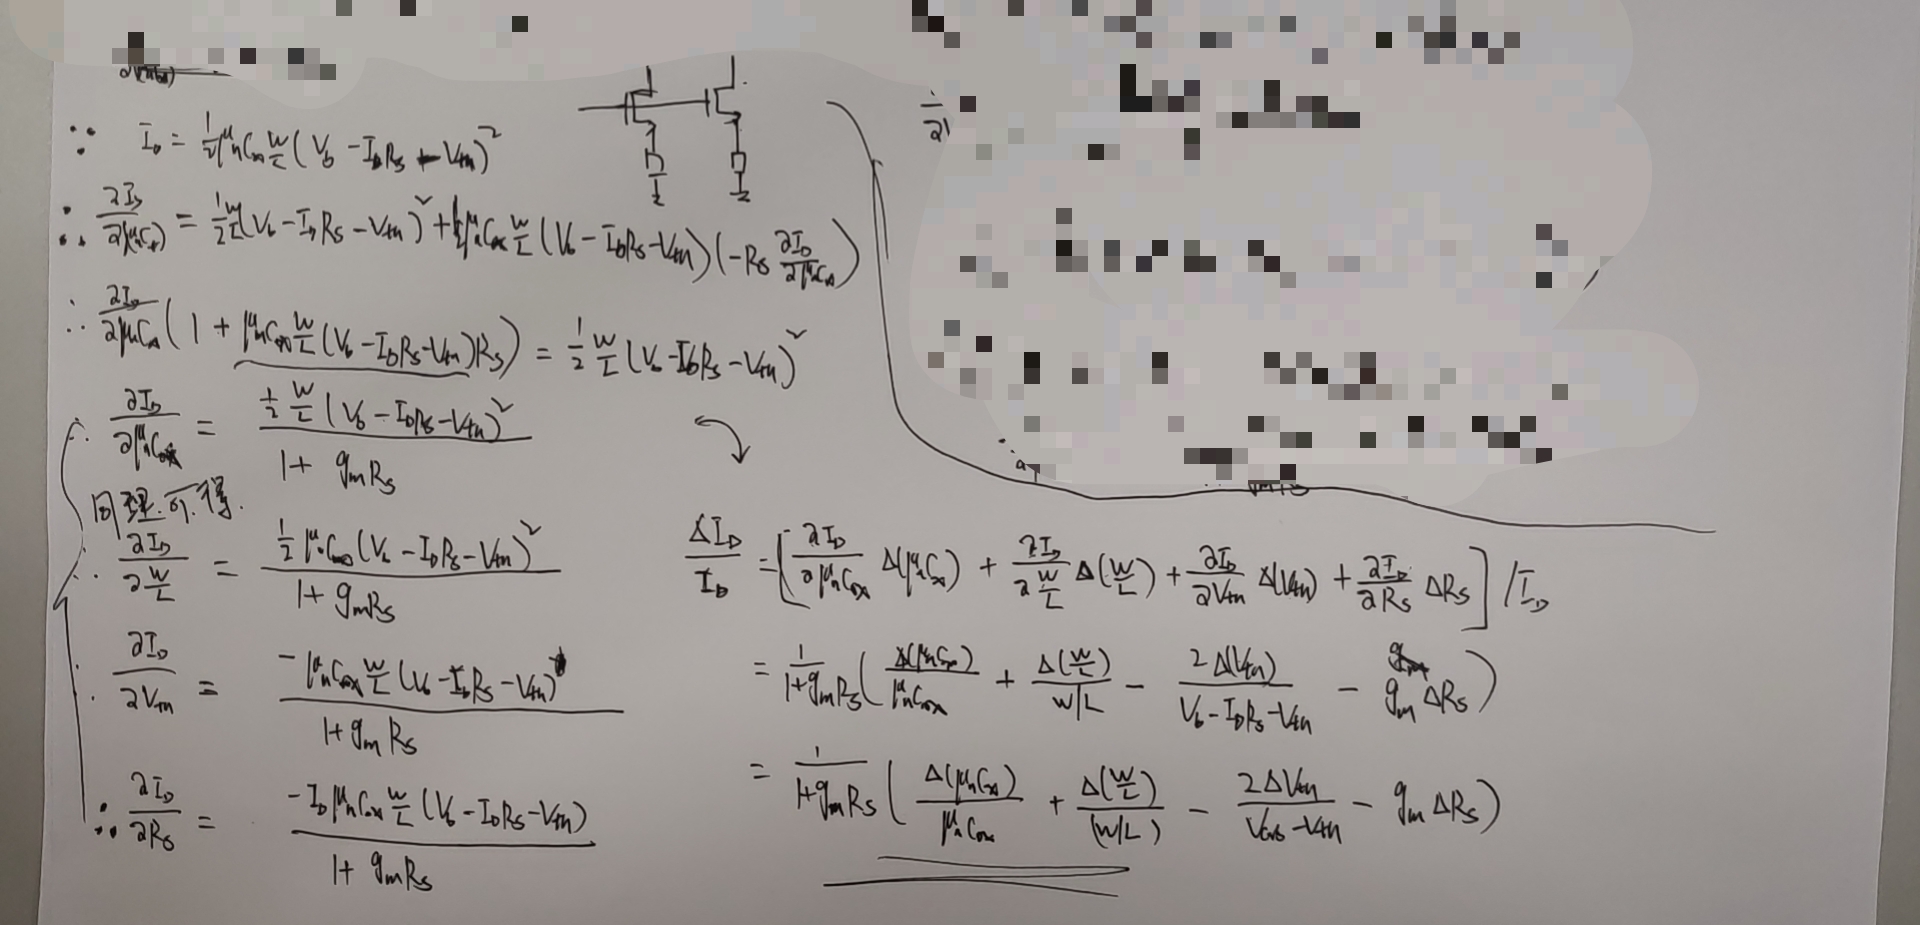 ∵ I_D = 1/2 μ_n C_ox W/L (V_b - I_D R_S - V_tn)^2
∴ ∂I_D/∂(μ_n C_ox) = 1/2 W/L (V_b - I_D R_S - V_tn)^2 + μ_n C_ox W/L (V_b - I_D R_S - V_tn)(-R_S ∂I_D/∂μ_n C_ox)
∴ ∂I_D/∂μ_n C_ox (1 + μ_n C_ox W/L (V_b - I_D R_S - V_tn) R_S) = 1/2 W/L (V_b - I_D R_S - V_tn)^2
∴ ∂I_D/∂μ_n C_ox = 1/2 W/L (V_b - I_D R_S - V_tn)^2 / (1 + g_m R_S)
同理可得.
∴ ∂I_D/∂(W/L) = 1/2 μ_n C_ox (V_b - I_D R_S - V_tn)^2 / (1 + g_m R_S)
∴ ∂I_D/∂V_tn = -μ_n C_ox W/L (V_b - I_D R_S - V_tn) / (1 + g_m R_S)
∴ ∂I_D/∂R_S = -I_D μ_n C_ox W/L (V_b - I_D R_S - V_tn) / (1 + g_m R_S)
ΔI_D/I_D = [∂I_D/∂μ_n C_ox Δ(μ_n C_ox) + ∂I_D/∂(W/L) Δ(W/L) + ∂I_D/∂V_tn Δ(V_tn) + ∂I_D/∂R_S ΔR_S] / I_D
= 1/(1+g_m R_S) (Δ(μ_n C_ox)/μ_n C_ox + Δ(W/L)/(W/L) - 2Δ(V_tn)/(V_b - I_D R_S - V_tn) - g_m ΔR_S)
= 1/(1+g_m R_S) (Δ(μ_n C_ox)/μ_n C_ox + Δ(W/L)/(W/L) - 2ΔV_tn/(V_GS - V_tn) - g_m ΔR_S)